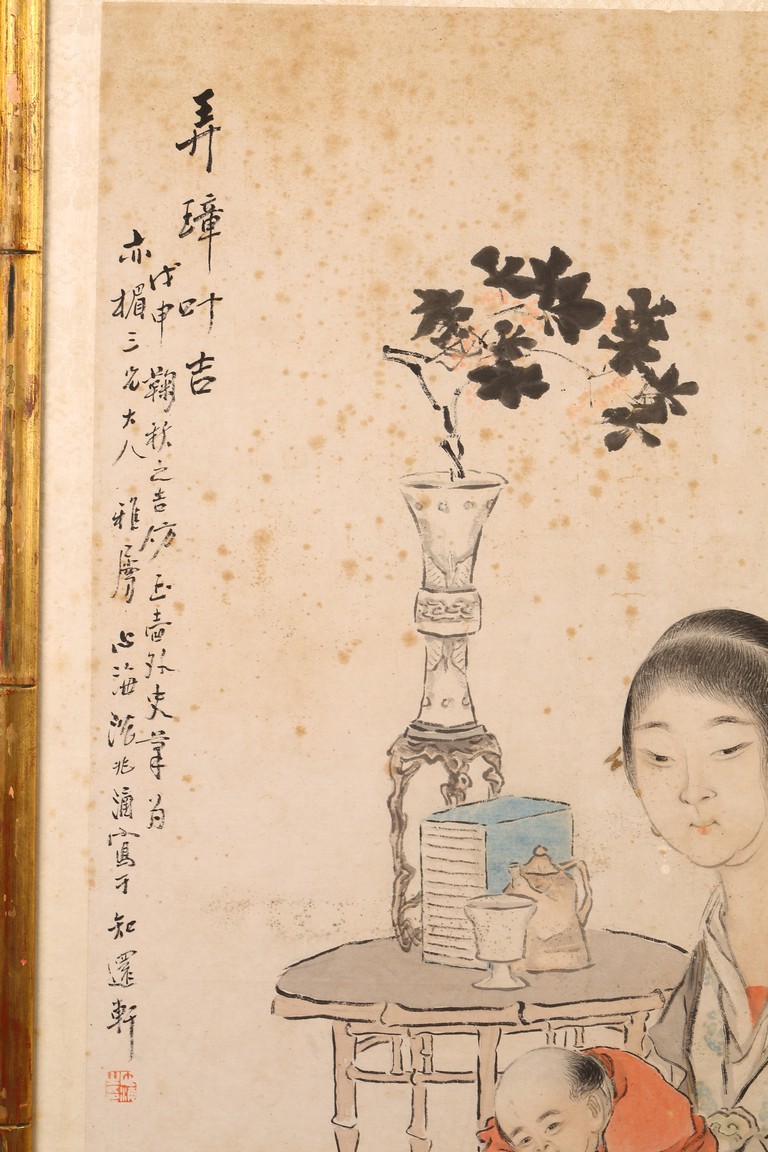 弄璋叶吉
戊申鞠秋之吉仿玉壶外史笔为
亦楣三兄大人雅属 心海沈兆涵写于知还轩